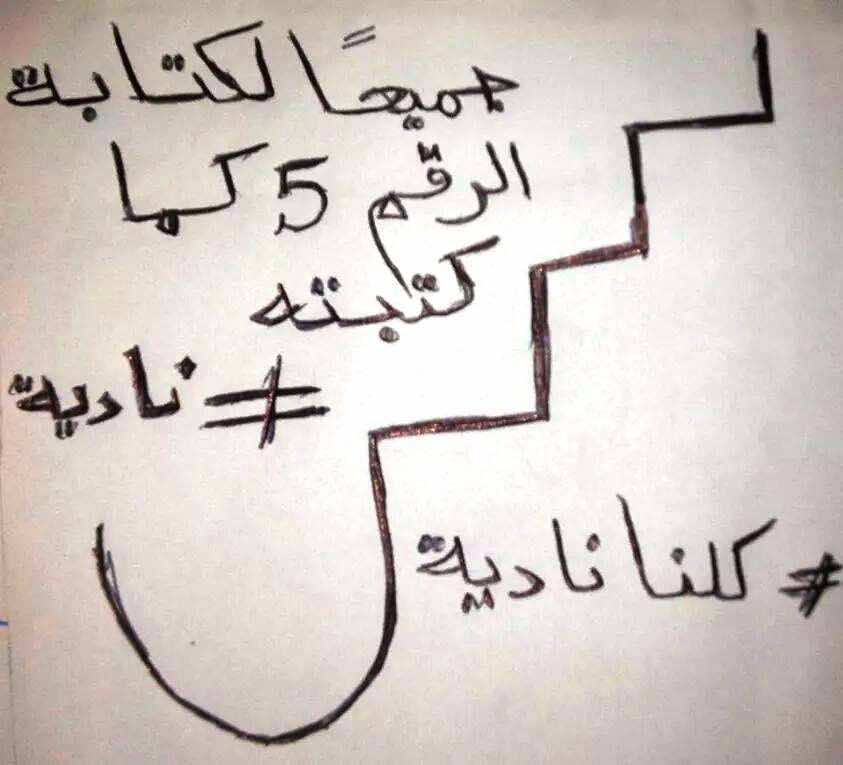 جميعًا لكتابة
الرقم 5 كما
كتبته
≠ نادية
# كلنا نادية